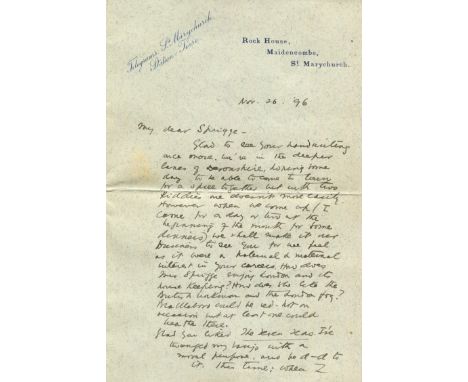 Telegrams, St Marychurch.
Station - Torre.
Rock House,
Maidencombe,
St Marychurch.
Nov. 26. '96
My dear Sprigge -
Glad to see your handwriting
once more. We're in the deeper
lanes of Devonshire, hoping some
day to be able to come to town
for a spell together but with two
kiddies one doesn't move easily
However when we come up (I
come for a day or two at the
beginning of the month for some
dinners) we shall make it our
business to see you for we feel
as it were a paternal & maternal
interest in your careers. How does
Mrs Sprigge enjoy London and its
house keeping? How does she like the
British and the London fog?
could be red-hot on
occasion but at least one could
breathe there.
Glad you liked The Seven Seas I've
my banjo with a
moral purpose, and be d-d to
it this time; when I